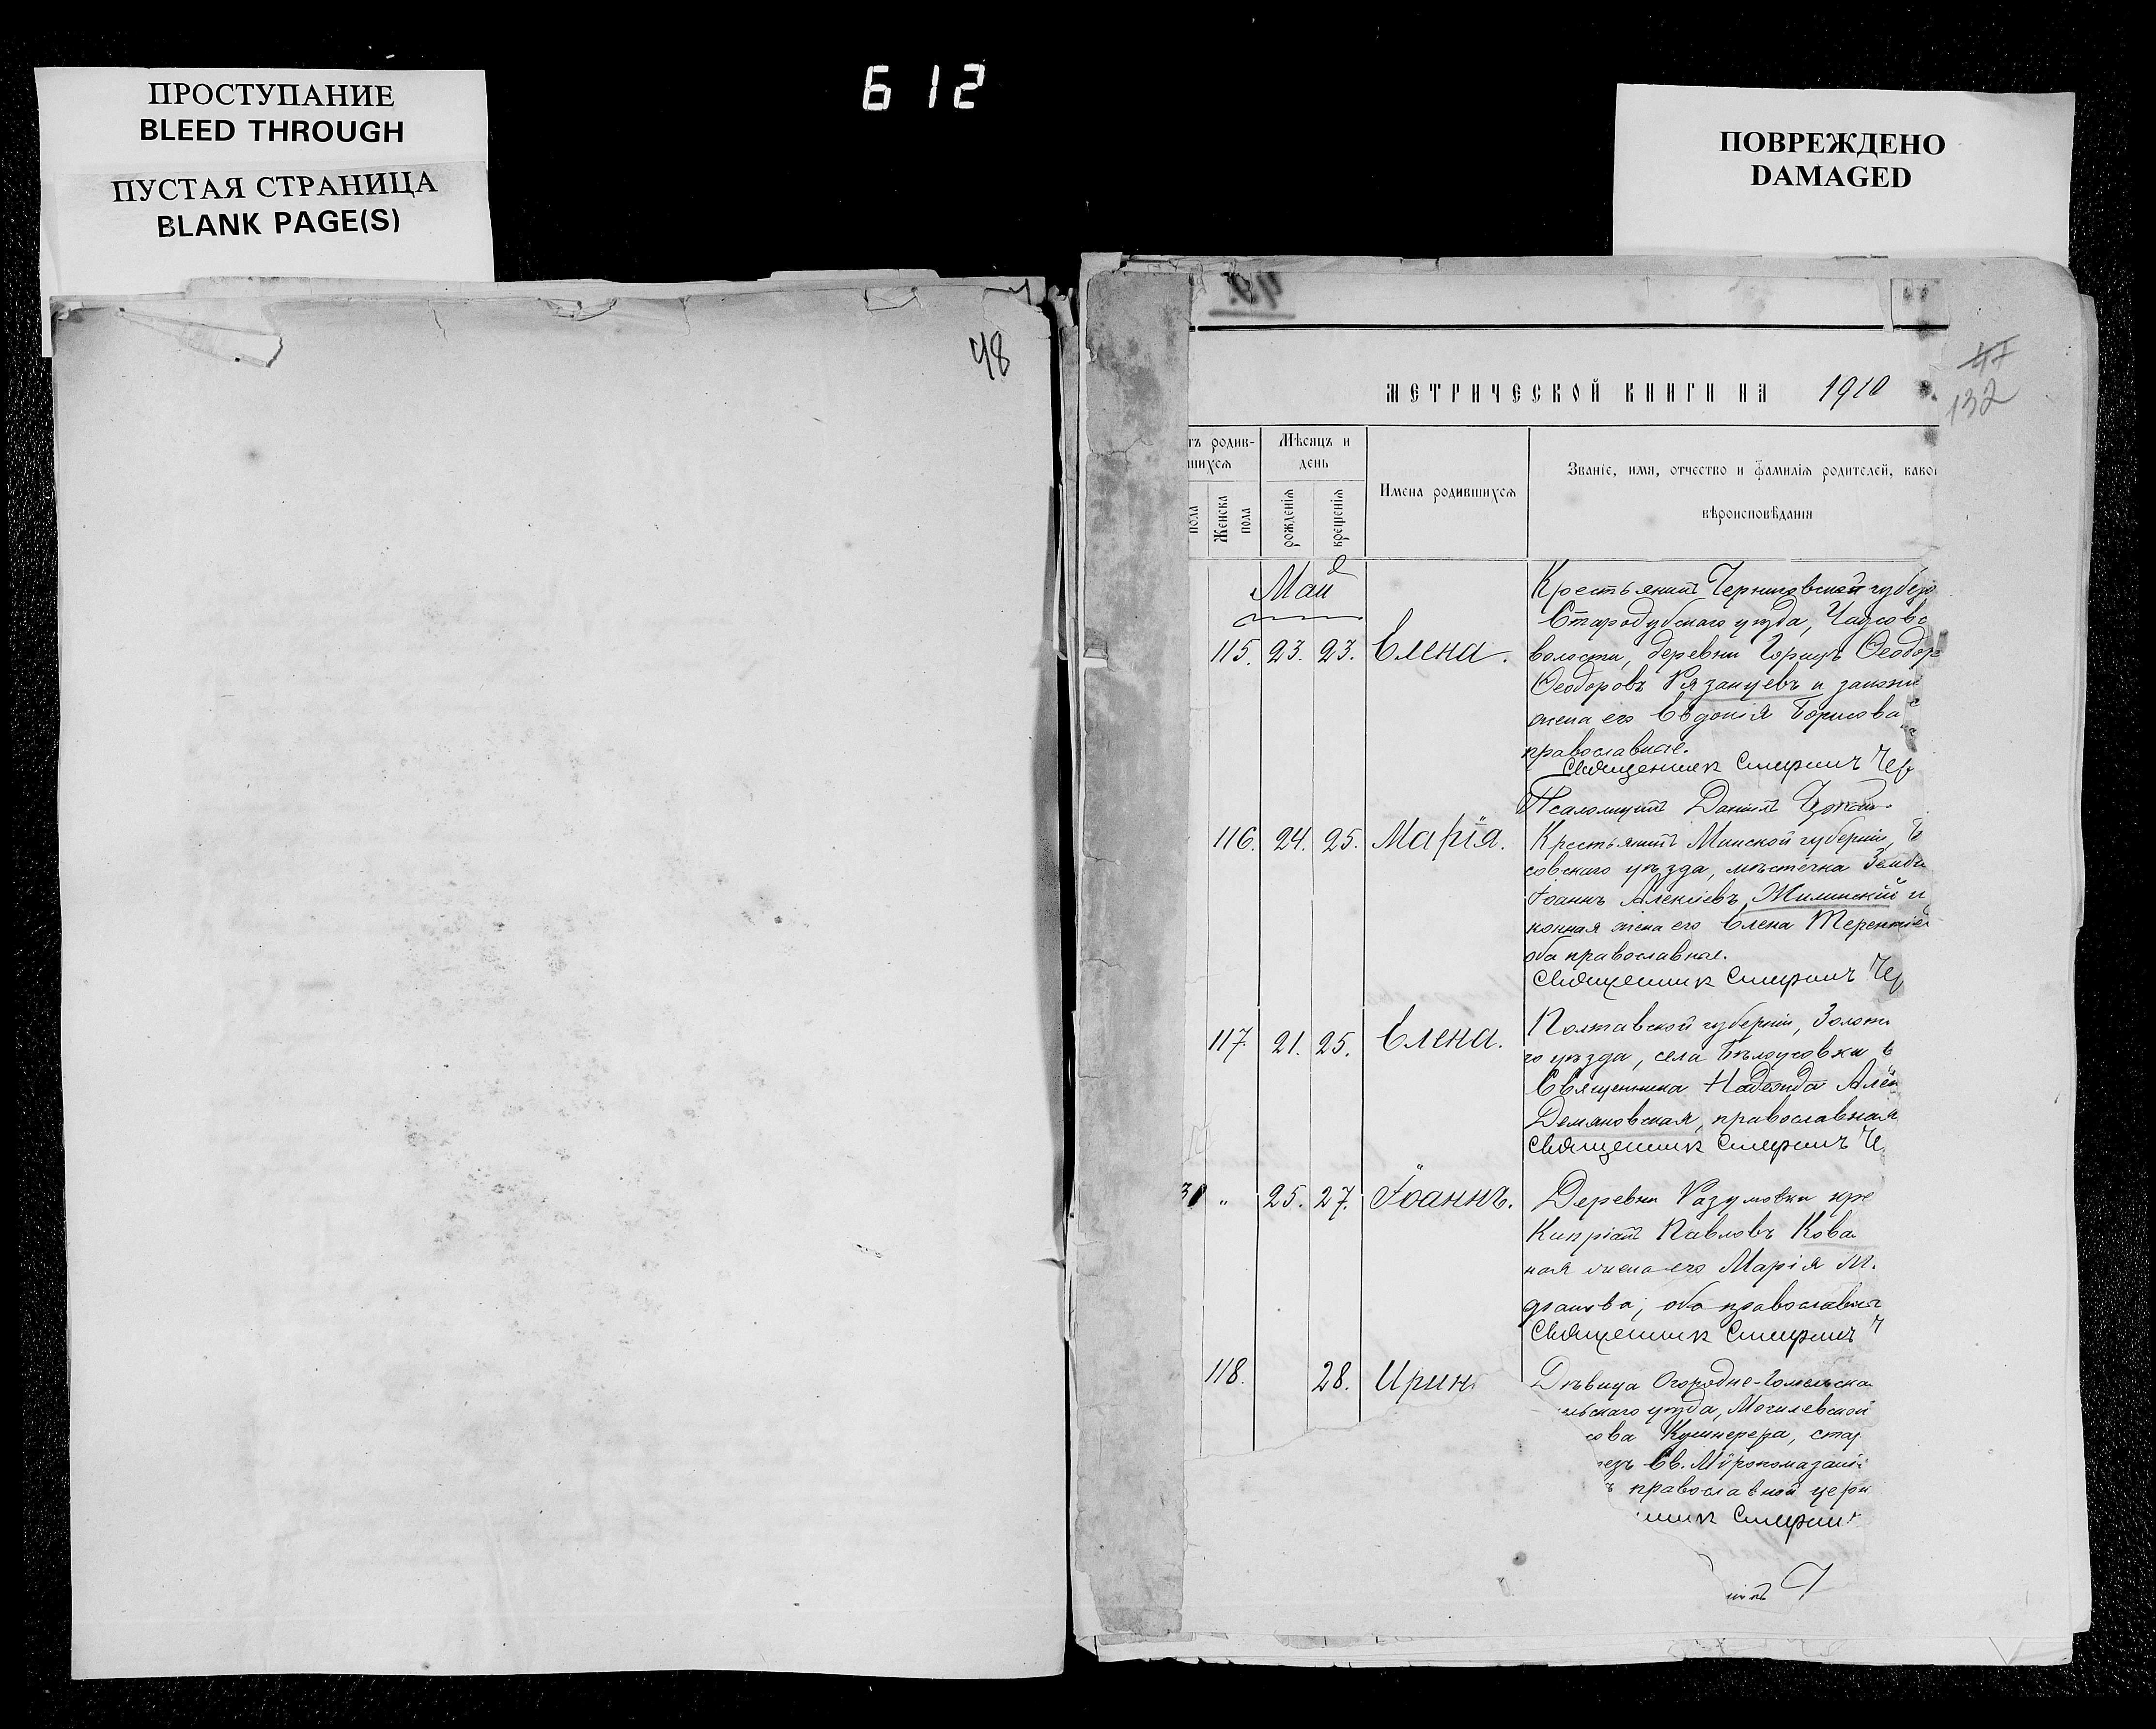 ПРОСТУПАНИЕ
BLEED THROUGH
ПУСТАЯ СТРАНИЦА
BLANK PAGE(S)
612
ПОВРЕЖДЕНО
DAMAGED
48
47
132
МЕТРИЧЕСКОЙ КНИГИ НА 1910
тъ родив-
шихся
Мѣсяцъ и
день
Имена родившихся
Званіе, имя, отчество и фамилія родителей, како
вѣроисповѣданія
пола
Женска
пола
рожденія
крещенія
Май
115. 23. 23. Елена.
Крестьянинъ Черниговской губер
Стародубскаго уѣзда,
волости, деревни Ѳеодор
Ѳеодоровъ Рязанцевъ и законн
жена его Евдокія Борисова
православные.
Священник Смирнич Чер
Псаломщикъ Даніилъ
116. 24. 25. Марія.
Крестьянинъ Минской губерніи, Б
совскаго уѣзда, мѣстечка Земби
Іоаннъ Алексіевъ Жилинскій и
конная жена его Елена Терентіе
оба православные.
Священник Смирнич Чер
117 21. 25. Елена.
Полтавской губерніи, Золот
го уѣзда, села Бѣлоусовки
Священника Надежда Алек
Демяновская, православная
Священник Смирнич Ч
25. 27. Іоаннъ.
Деревни Разумовки кре
Кипріанъ Павловъ Кова
ная жена его Марія М.
оба православны
Священник Смирнич Ч
118. 28. Ирин
Дѣвица Огородне-Гомельска
льскаго уѣзда, Могилевской
сова стар
резъ Св. Мѵропомазані
ъ православной церк
ник Смирнич